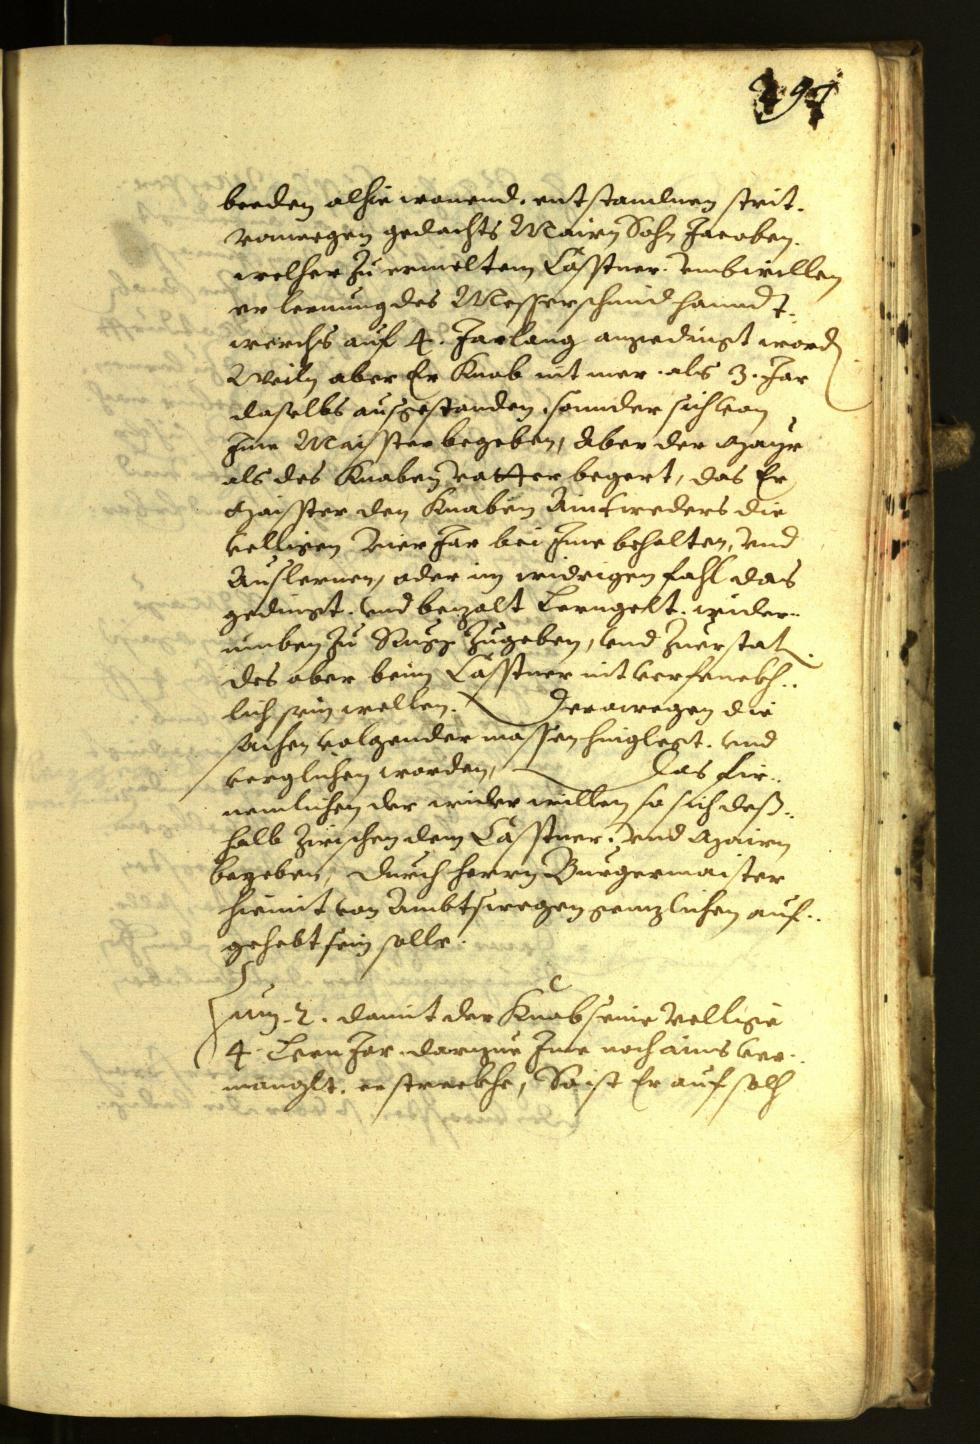 297
beeden alhie wonend. entstandnen strit.
vonwegen gedachts Mairn Sohn Jacoben.
welher zu ermeltem Cässtner. umb willen
erlernung des Messerschmid hanndt-
werchs auf 4. Jarlang angedingt word
Weiln aber Er Knab nit mer. als 3. Jar
daselbs ausgestanden, sonnder sich von
Jme Maister begeben, Aber der Mayr
als des Knaben vatter begert, das Er
Maisster den Knaben Aintweders die
velligen vier Jar bei Jme behalten, und
Auslernen, oder im widrigen fahl das
gedingt. und bezalt Lerngelt. wider-
umben zu Rugg zugeben, und zuerstat
des aber beim Cässtner nit verfenckh-
lich sein wellen. Derowegen die
sachen volgender massen hinglegt. und
verglichen worden, Das fir-
nemlichen der widerwillen so sich deß-
halb zwischen dem Cässtner. und Mairn
begeben, durch herrn Burgermaister
hiemit von Ambtswegen genzlichen auf-
gehebt sein solle.
Zum 2. damit der Knab seine vellige
4. Lern Jar. darzue Jme noch ains ver-
manglt. erstreckhe, So ist Er auf solh